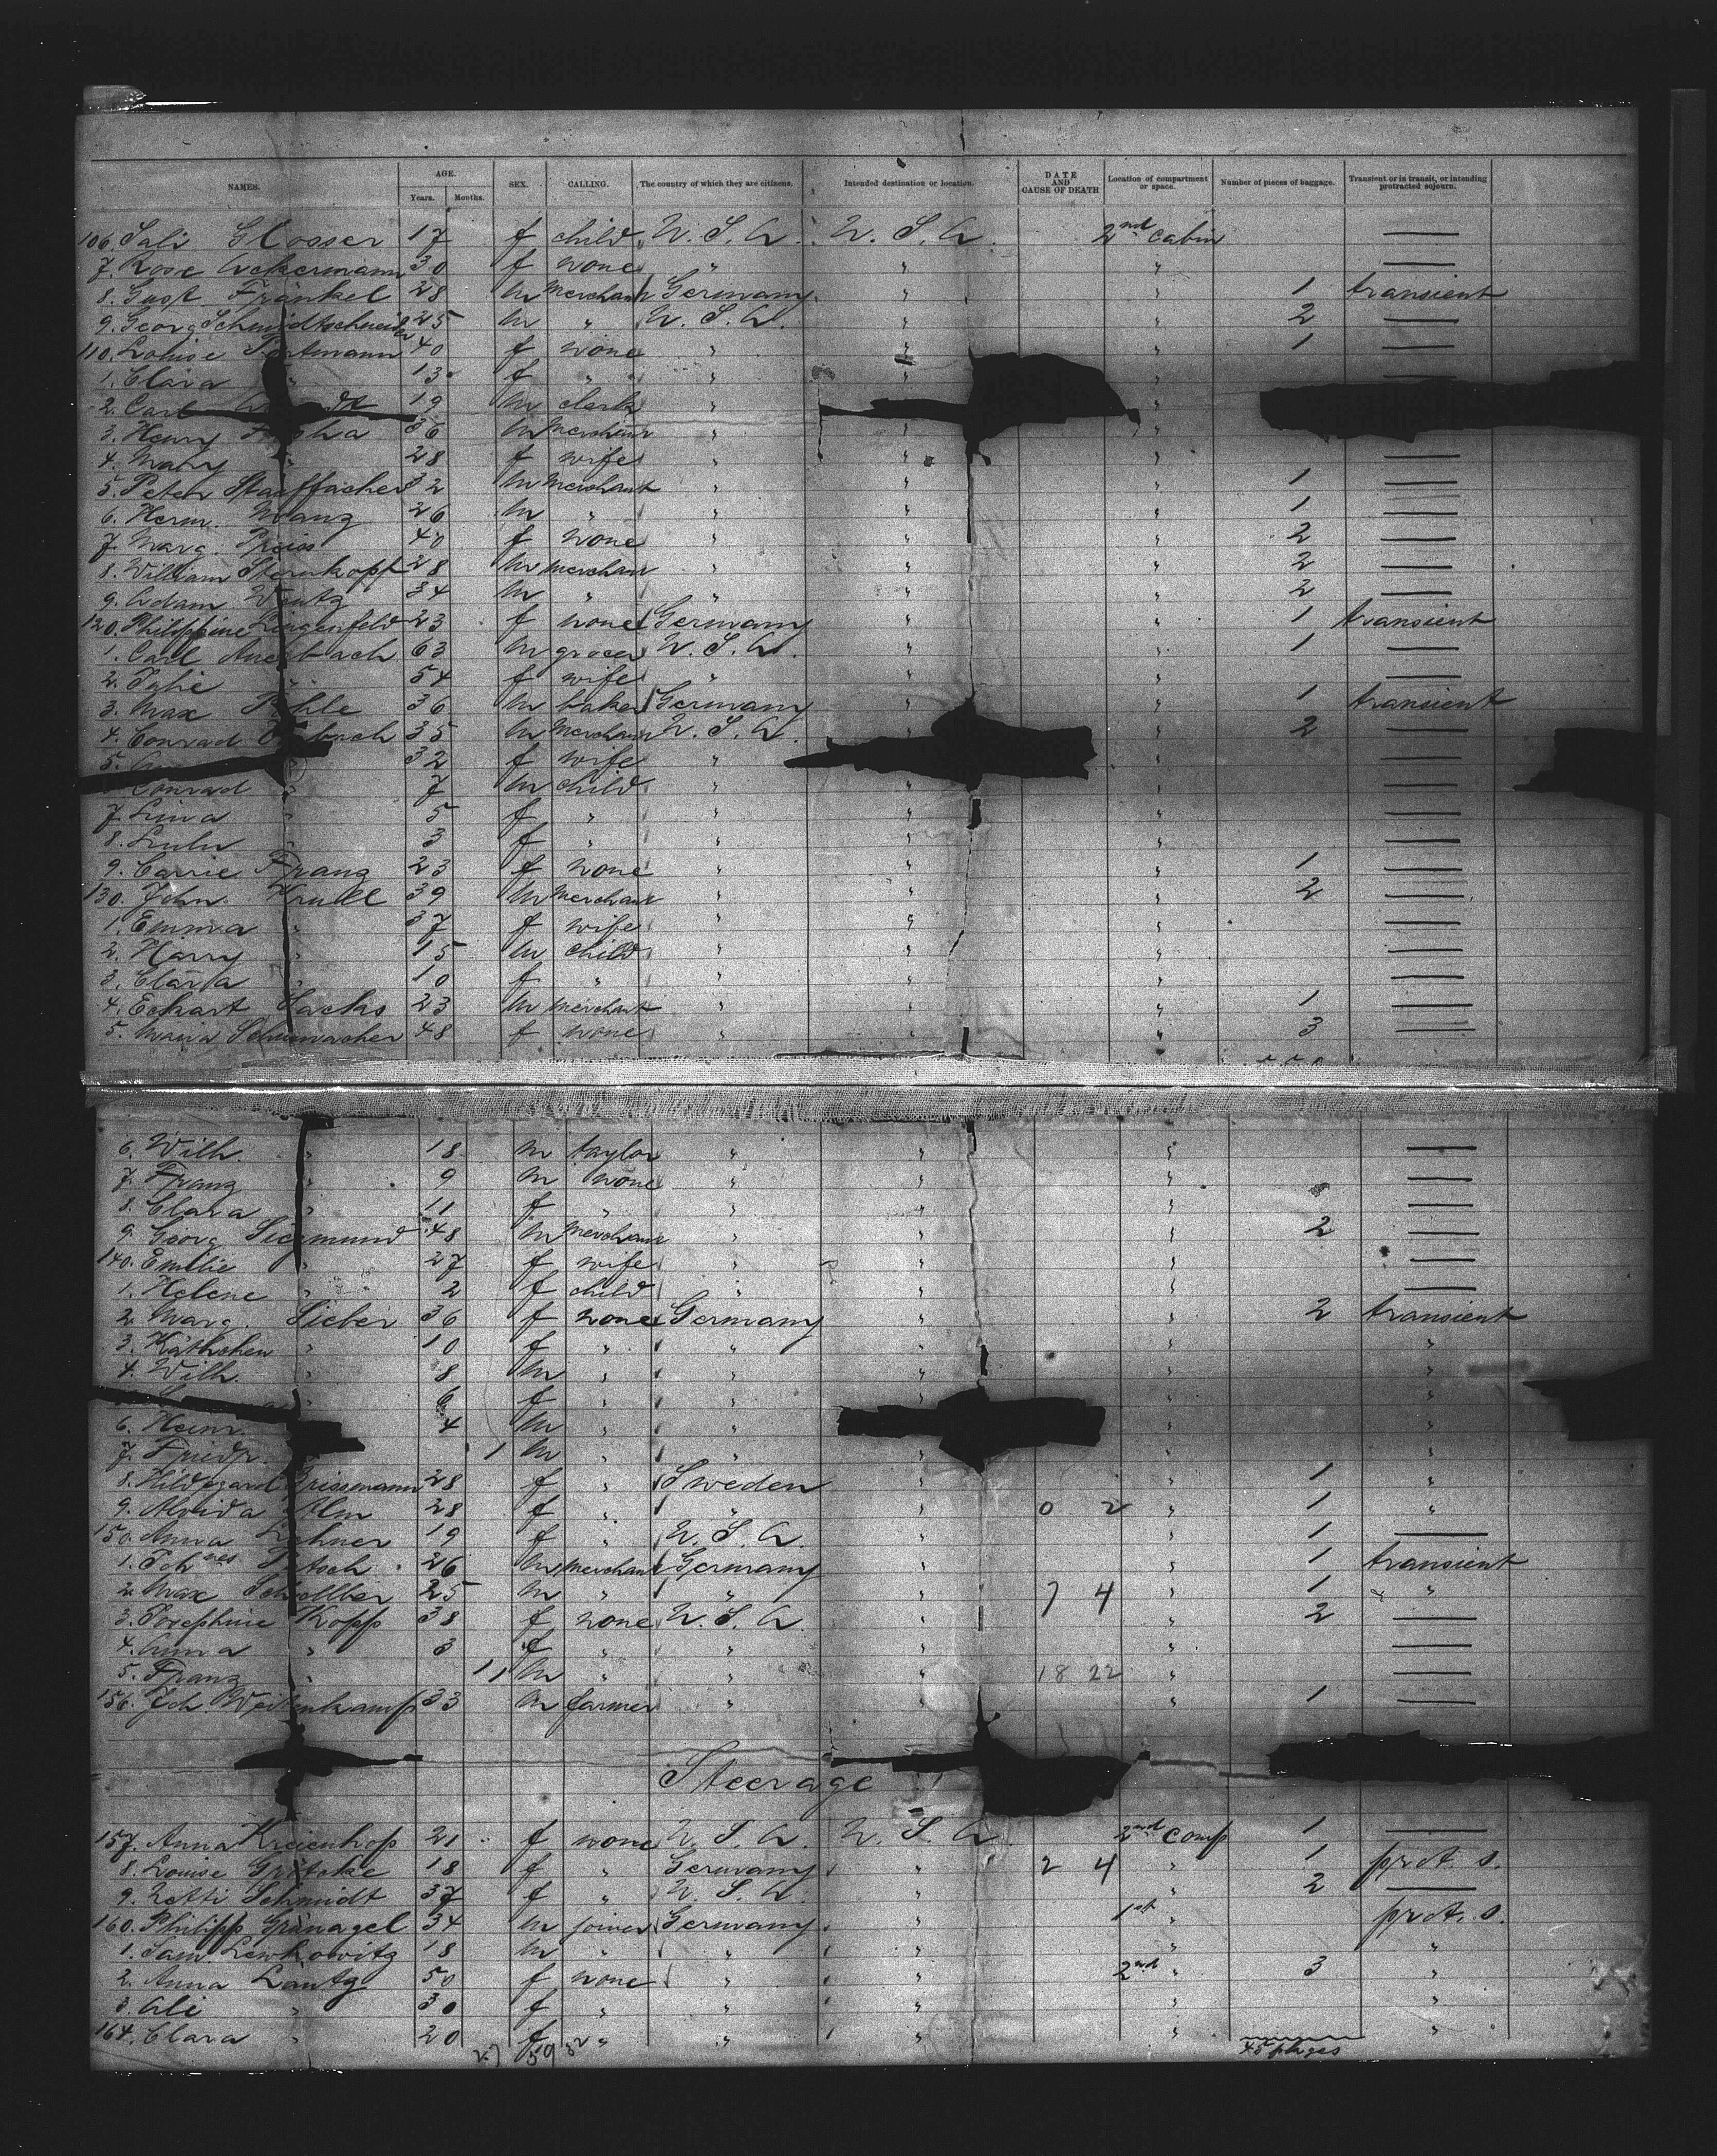 NAMES. AGE. Years. Months. SEX. CALLING. The country of which they are citizens. Intended destination or location. DATE AND CAUSE OF DEATH Location of compartment or space. Number of pieces of baggage. Transient or in transit, or intending protracted sojourn.
106. Sali Glosser 17 f child U. S. A. U. S. A. 2nd Cabin —
7. Rose Ackermann 30 f none " " " —
8. Gust Fränkel 28 m merchant Germany " " 1 transient
9. Georg Schmidtschneider 25 m " U. S. A. " " 2 —
110. Louise 40 f none " " " 1 —
1. Clara " 13 f " " " —
2. Carl 19 m clerk " "
3. Henry 36 m merchant " "
4. Mary " 28 f wife " " " —
5. Peter Stauffacher 32 m merchant " " " 1 —
6. Herm. Manz 26 m " " " " 1 —
7. Marg. Preiss 40 f none " " " 2 —
8. William Sternkopf 28 m merchant " " " 2 —
9. Adam Wentz 34 m " " " " 2 —
120. Philippine Lingenfeld 23 f none Germany " " 1 transient
1. Carl Auerbach 63 m grocer U. S. A. " " 1 —
2. " 54 f wife " " " —
3. Max 36 m baker Germany " " 1 transient
4. Conrad 35 m merchant U. S. A. " 2 —
5. 32 f wife " " —
Conrad " 7 m child " " " —
7. Lina " 5 f " " " " —
8. Lulu " 3 f " " " " —
9. Carrie Franz 23 f none " " " 1 —
130. John Krull 39 m merchant " " " 2 —
1. Emma " 37 f wife " " " —
2. Harry " 15 m child " " " —
3. Clara " 10 f " " " " —
4. Eckart Sachs 23 m merchant " " " 1 —
5. Maria Schumacher 48 f none " " " 3 —
6. Wilh. " 18 m taylor " " " —
7. Franz " 9 m none " " " —
8. Clara " 11 f " " " " —
9. Georg Siegmund 48 m merchant " " " 2 —
140. Emilie " 27 f wife " " " —
1. Helene " 2 f child " " " —
2. Marg. Sieber 36 f none Germany " " 2 transient
3. Käthchen " 10 f " " " " "
4. Wilh. " 8 m " " " " "
6 f " " " "
6. Heinr. 4 m " " " "
7. Friedr. 1 m " " " "
8. Hildegard 28 f " Sweden " " 1 "
9. Alvida Alm 28 f " " " 0 2 " 1 "
150. Anna Lehner 19 f " U. S. A. " " 1 —
1. Johnes 26 m merchant Germany " " 1 transient
2. Max 25 m " " " 7 4 " 1 "
3. Josephine Kopp 38 f none U. S. A. " " 2 —
4. Anna " 3 f " " " " —
5. Franz " 11 m " " " 18 22 " —
156. Joh. 33 m farmer " " " 1 —
Steerage
157. Anna Kreienhop 21 f none U. S. A. U. S. A. 2nd Comp 1 —
8. Louise Grötzke 18 f " Germany " 2 4 " 1 prot. s.
9. Zetti Schmidt 37 f " U. S. A. " " 2 —
160. Philipp Grünagel 34 m joiner Germany " 1st " prot. s.
1. Sam. Lewkowitz 18 m " " " " "
2. Anna Lantz 50 f none " " 2nd " 3 "
3. Ali " 30 f " " " " "
164. Clara " 20 f " " " " "
27 59 32 45 pkges